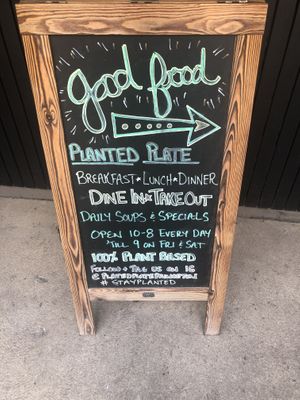 good food
PLANTED PLATE
BREAKFAST★LUNCH★DINNER
DINE IN★TAKE OUT
DAILY SOUPS & SPECIALS
OPEN 10-8 EVERY DAY
'TILL 9 ON FRI & SAT
100% PLANT BASED
FOLLOW & TAG US ON IG
# STAYPLANTED